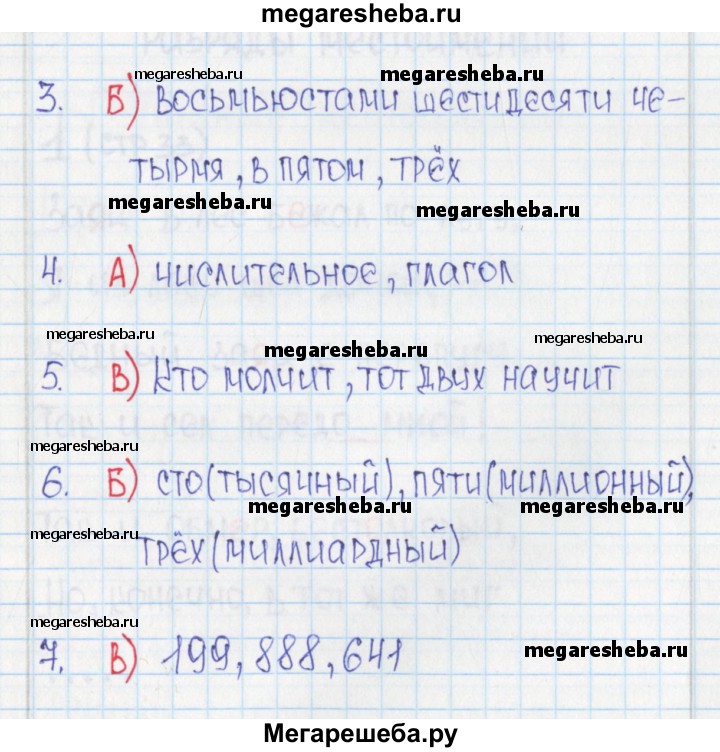 megaresheba.ru
megaresheba.ru megaresheba.ru
3. Б) восьмьюстами шестидесяти че-
тырмя, в пятом, трёх
megaresheba.ru megaresheba.ru
4. А) числительное, глагол
megaresheba.ru megaresheba.ru megaresheba.ru
5. В) Кто молчит, тот двух научит
megaresheba.ru
6. Б) сто(тысячный), пяти(миллионный),
megaresheba.ru megaresheba.ru megaresheba.ru
трёх(миллиардный)
megaresheba.ru megaresheba.ru
7. В) 199, 888, 641
megaresheba.ru
Мегарешеба.ру